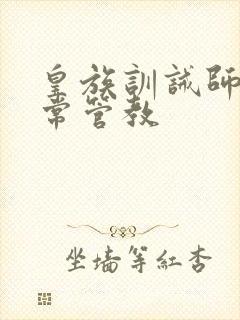 皇族訓誡師
常管教
坐墙等紅杏